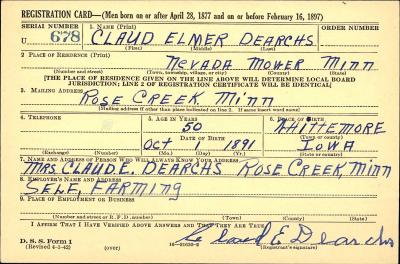 REGISTRATION CARD—(Men born on or after April 28, 1877 and on or before February 16, 1897)
SERIAL NUMBER 1. Name (Print) ORDER NUMBER
U 678 CLAUD ELMER DEARCHS
(First) (Middle) (Last)
2. Place of Residence (Print)
NEVADA MOWER MINN
(Number and street) (Town, township, village, or city) (County) (State)
[THE PLACE OF RESIDENCE GIVEN ON THE LINE ABOVE WILL DETERMINE LOCAL BOARD
JURISDICTION; LINE 2 OF REGISTRATION CERTIFICATE WILL BE IDENTICAL]
3. Mailing Address
ROSE CREEK MINN
[Mailing address if other than place indicated on line 2. If same insert word same]
4. Telephone 5. Age in Years 6. Place of Birth
50 WHITTEMORE
Date of Birth (Town or county)
OCT 1 1891 IOWA
(Exchange) (Number) (Mo.) (Day) (Yr.) (State or country)
7. Name and Address of Person Who Will Always Know Your Address
MRS. CLAUD E. DEARCHS ROSE CREEK, MINN
8. Employer's Name and Address
SELF, FARMING
9. Place of Employment or Business
(Number and street or R. F. D. number) (Town) (County) (State)
I Affirm That I Have Verified Above Answers and That They Are True.
D. S. S. Form 1 Claud E Dearchs
(Revised 4-1-42) (over) (Registrant's signature)